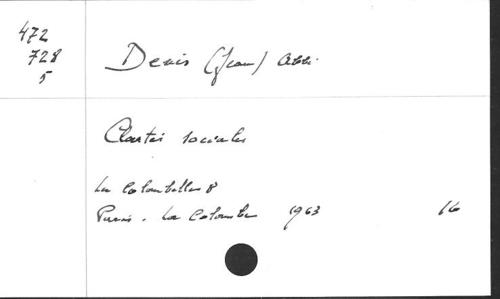 472
728
5
Denis (Jean) Abbé
Clartés sociales
La Colombelle 8
Paris. La Colombe 1963 16